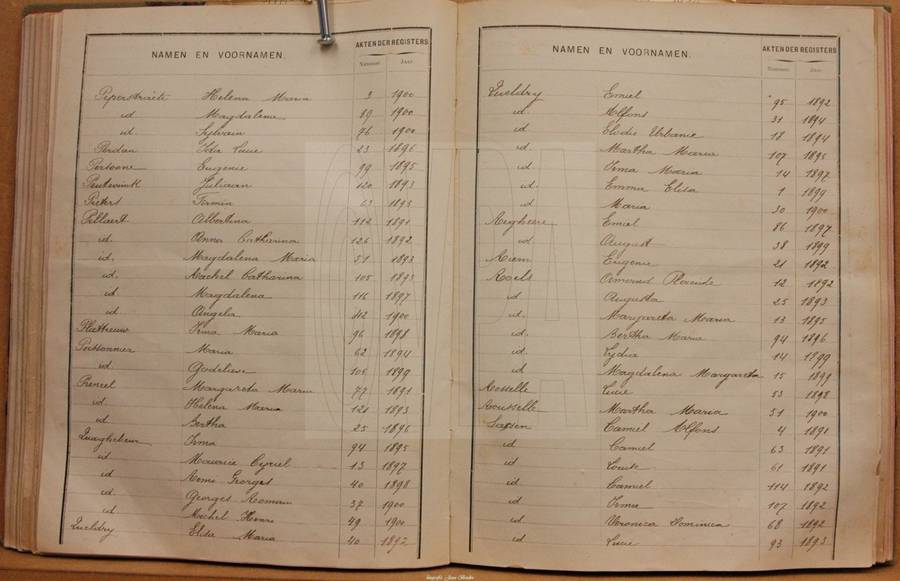 NAMEN EN VOORNAMEN. AKTEN DER REGISTERS
Nummer Jaar
Helena Maria 3 1900
id Magdalena 69 1900
id Sylvain 76 1900
Perdan Ida Lucie 23 1896
Persoone Eugenie 99 1895
Juliaan 120 1893
Pieters Firmin 63 1895
Pillaert Albertina 112 1891
id. Anna Catharina 126 1892
id. Magdalena Maria 51 1893
id. Rachel Catharina 105 1893
id. Magdalena 116 1897
id Angela 42 1900
Platteeuw Irma Maria 96 1898
Poissonnier Maria 62 1894
id Godelieve 105 1899
Provoost Margareta Maria 77 1891
id. Helena Maria 121 1893
id Bertha 25 1896
Quaghebeur Irma 94 1895
id Maurice Cyriel 13 1897
id Remi Georges 40 1898
id. Georges Roman 37 1900
id Michel Henri 49 1900
Queldry Elisa Maria 40 1892
NAMEN EN VOORNAMEN. AKTEN DER REGISTERS
Nummer Jaar
Queldry Emiel 95 1892
id. Alfons 31 1894
id Elodie Urbanie 18 1894
id Martha Maria 107 1895
id Irma Maria 14 1897
id. Emma Elisa 1 1899
id Maria 30 1900
Reyhere Emiel 86 1897
id August 38 1899
Riem Eugenie 21 1892
Roels Amand 12 1892
id Augusta 25 1893
id. Margareta Maria 13 1895
id. Bertha Maria 94 1896
id. Lydia 14 1899
id Magdalena Margareta 15 1899
Rosselle Lucie 53 1898
Rousselle Martha Maria 31 1900
Camiel Alfons 4 1891
id Camiel 63 1891
id Louis 61 1891
id Camiel 114 1892
id Irma 107 1892
id Veronica Dominica 68 1892
id Lucie 93 1893